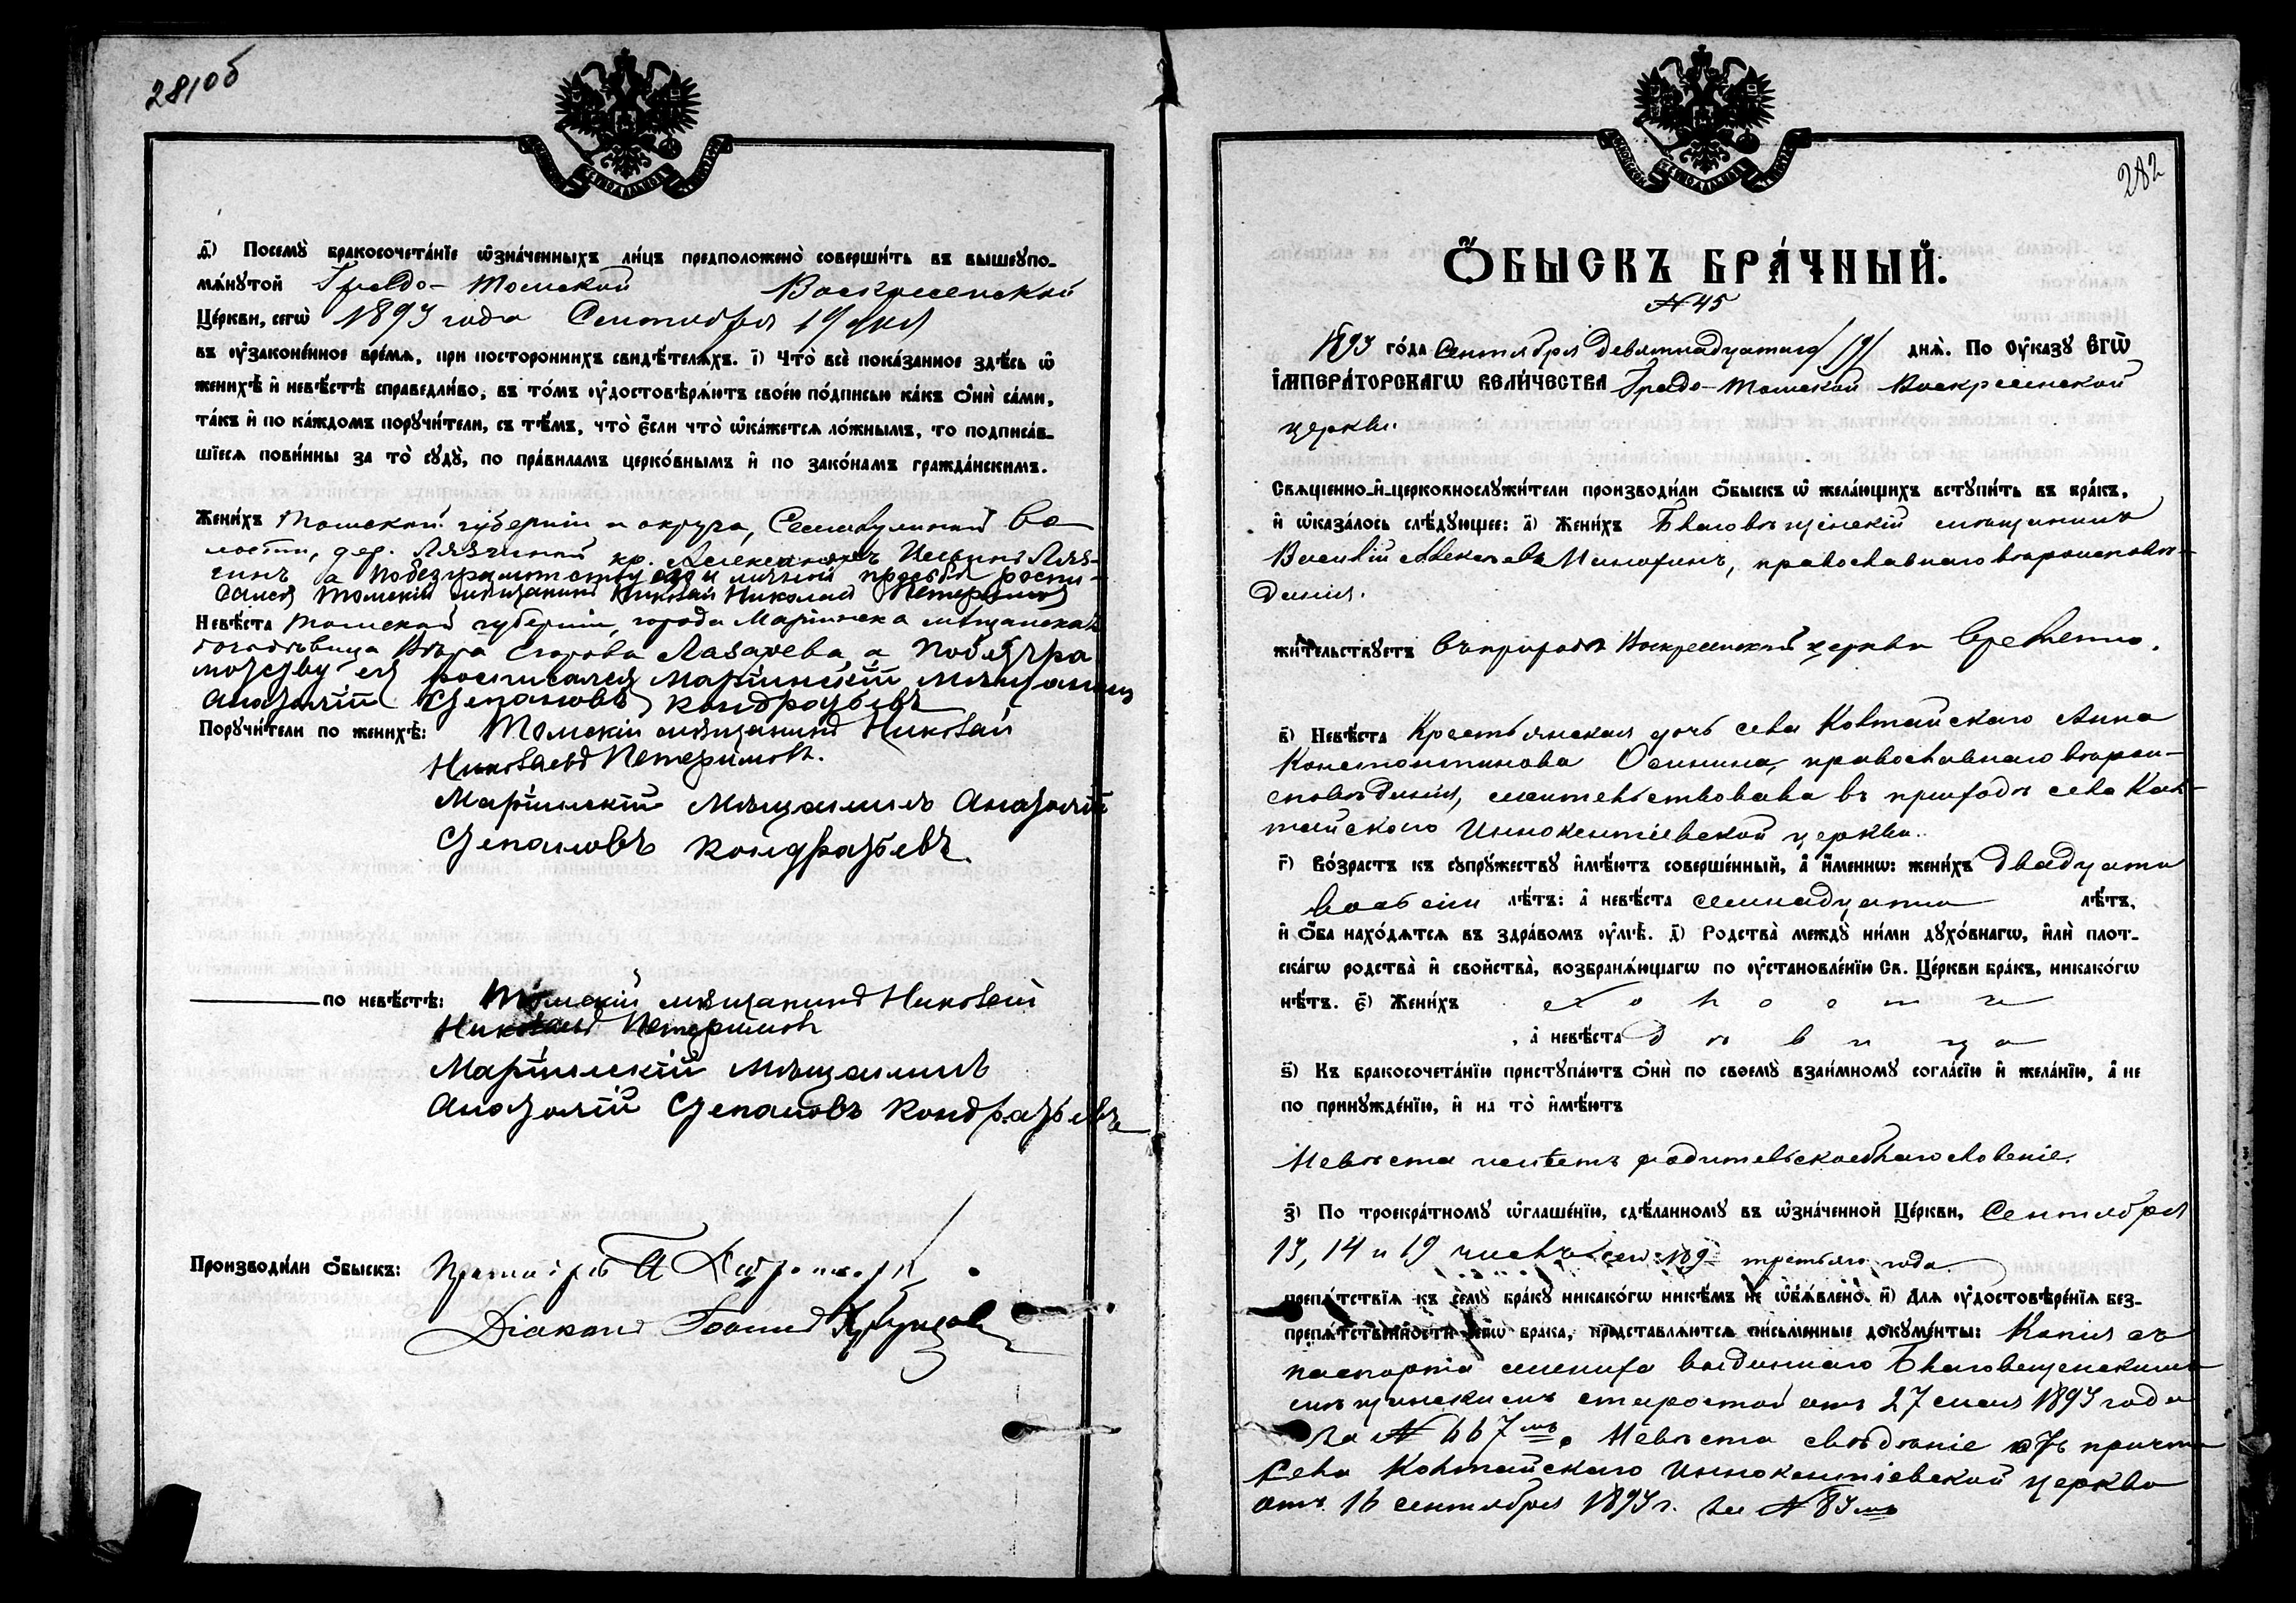 281об
д҃) Посемꙋ̀ бракосочета́нїе ѡ҆зна́ченныхъ ли́цъ предположено̀ соверши́ть въ вышеꙋпо-
мѧ́нꙋтой Градо-Томской Воскресенской
Це́ркви, сегѡ̀ 1893 года Сентября 19 дня
въ ᲂу҆законе́нное вре́мѧ, при посторо́ннихъ свидѣ́телѧхъ. і҃) Что̀ всѐ пока́занное здѣ́сь ѡ҆
женихѣ̀ и҆ невѣ́стѣ справедли́во, въ то́мъ ᲂу҆достовѣрѧ́ютъ свое́ю по́дписью ка́къ ѻ҆нѝ са́ми,
та́къ и҆ по ка́ждомъ порꙋчи́тели, съ тѣ́мъ, что̀ є҆́сли что̀ ѡ҆ка́жетсѧ ло́жнымъ, то подписа́в-
шїесѧ пови́нны за то̀ сꙋдꙋ̀, по пра́виламъ церко́внымъ и҆ по зако́намъ гражда́нскимъ.
Жени́хъ Томской губерніи и округа, Семилужной во-
лости, дер. Лязгиной кр. Александръ Ильинъ Ляз-
гинъ а по безграмотству его и личной просьбѣ роспи-
сался Томскій мѣщанинъ Николай Николаевъ Петеримовъ
Невѣ́ста Томской губерніи, города Маріинска мѣщанская
Егорова Лазарева, а по безгра
мотству ея росписался Маріинскій мѣщанинъ
Анатолій Степановъ Кондратьевъ
Порꙋчи́тели по женихѣ̀: Томскій мѣщанинъ Николай
Николаевъ Петеримовъ.
Маріинскій Мѣщанинъ Анатолій
Степановъ Кондратьевъ.
по невѣ́стѣ: Томскій мѣщанинъ Николай
Николаевъ Петеримовъ
Маріинскій Мѣщанинъ
Анатолій Степановъ Кондратьевъ
Производи́ли ѻ҆́быскъ:
Діаконъ Іоаннъ
282
Ѻ҆́БЫСКЪ БРА́ЧНЫЙ.
№ 45
1893 го́да Сентября девятнадцатаго /19/ днѧ̀. По Ѹ҆ка́зꙋ Є҆ГѠ̀
І҆МПЕРА́ТОРСКАГѠ ВЕЛИ́ЧЕСТВА Градо-Томской Воскресенской
церкви.
Свѧщенно-и҆-церковнослꙋжи́тели производи́ли ѻ҆́быскъ ѡ҆ жела́ющихъ встꙋпи́ть въ бра́къ,
и҆ ѡ҆каза́лось слѣ́дꙋющее: а҃) Жени́хъ Благовѣщенскій мѣщанинъ
Василій Алексѣевъ, православнаго вѣроисповѣ-
данія.
жи́тельствꙋетъ въ приходѣ Воскресенской церкви временно.
в҃) Невѣ́ста Крестьянская дочь села Колтайскаго Анна
Константинова Осинина, православнаго вѣрои-
сповѣданія, жительствовала въ приходѣ села Кол-
тайскаго Иннокентіевской церкви.
г҃) Во́зрастъ къ сꙋпрꙋ́жествꙋ и҆мѣ́ютъ соверше́нный, а҆ и҆́меннѡ: жени́хъ двадцати
восьми лѣ́тъ: а҆ невѣ́ста семнадцати лѣ́тъ,
и҆ ѻ҆́ба нахо́дѧтсѧ въ здра́вомъ ᲂу҆мѣ̀. д҃) Родства̀ междꙋ̀ ни́ми дꙋхо́внагѡ, и҆лѝ плот-
ска́гѡ родства̀ и҆ сво́йства̀, возбранѧ́ющагѡ по ᲂу҆становле́нїю Св. Це́ркви бра́къ, никако́гѡ
нѣ́тъ. є҃) Жени́хъ холостъ
, а҆ невѣ́ста дѣвица
ѕ҃) Къ бракосочета́нїю пристꙋпа́ютъ ѻ҆нѝ по своемꙋ̀ взаи́мномꙋ согла́сїю и҆ жела́нїю, а҆ не
по принꙋжде́нїю, и҆ на то̀ и҆мѣ́ютъ
Невѣста имѣетъ родительское благословеніе.
з҃) По троекра́тномꙋ ѡ҆глаше́нїю, сдѣ́ланномꙋ въ ѡ҆зна́ченной Це́ркви, Сентября
13, 14 и 19 чиселъ сего 189 третьяго года
препѧ́тствїѧ къ семꙋ̀ бра́кꙋ никако́гѡ никѣ́мъ не ѡ҆б̾ѧвлено̀. и҃) Длѧ ᲂу҆достовѣре́нїѧ без-
препѧ́тственности сегѡ̀ брака, представлѧ́ютсѧ пи́сьменные докꙋме́нты: Копія съ
паспорта жениха выданнаго Благовещенскимъ
мѣщанскимъ старостой отъ 27 мая 1893 года
за № 667мъ. Невѣста свѣдѣніе отъ причта
села Колтайскаго Иннокентіевской церкви
отъ 16 сентября 1893 г. за № 83мъ